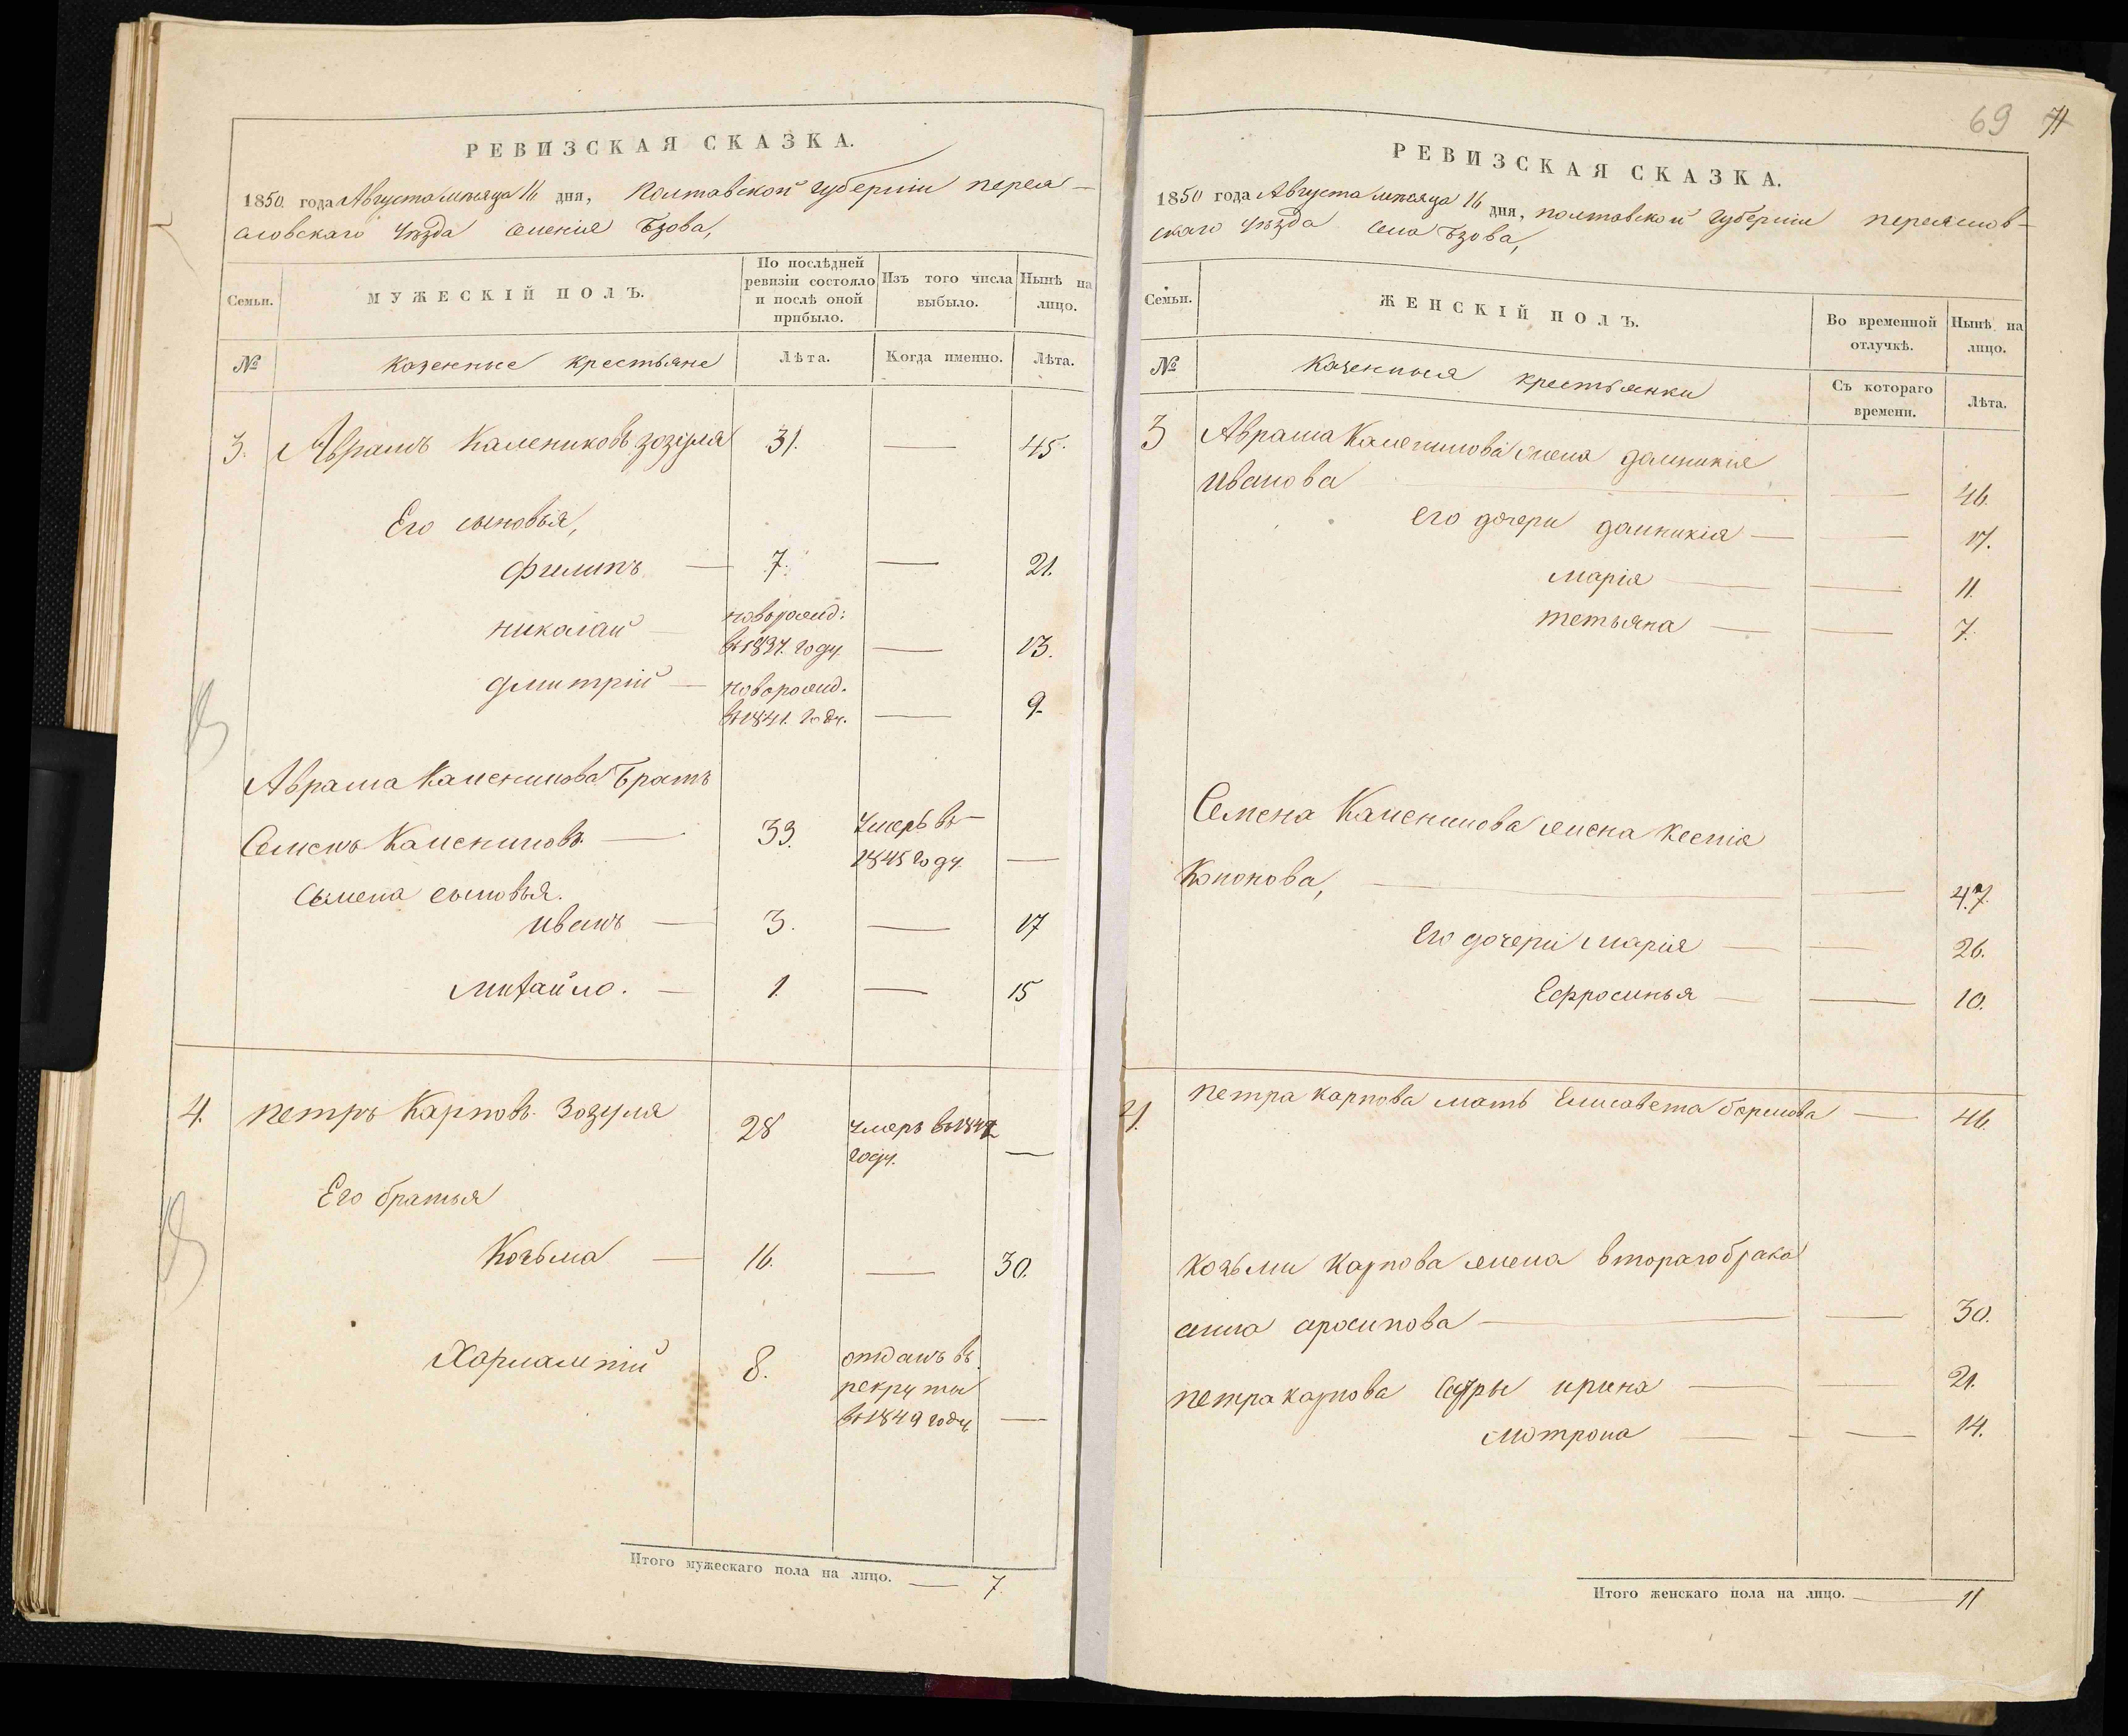 РЕВИЗСКАЯ СКАЗКА.
1850 года Августа месяца 16 дня, Полтавской губерніи перея-
словскаго уѣзда селенія Бзова,
Семьи.
МУЖЕСКІЙ ПОЛЪ.
По послѣдней ревизіи состояло и послѣ оной прибыло.
Изъ того числа выбыло.
Нынѣ на лицо.
№
казенные крестьяне
Лѣта.
Когда именно.
Лѣта.
3. Аврамъ Калениковъ зозуля 31. — 45.
Его сыновья,
Филипъ — 7. — 21.
николай — новорожд:
въ 1837. году — 13.
дмитрій — новорожд.
въ 1841. году. — 9.
Аврама Каленикова братъ
Семенъ Калениковъ. — 33. умеръ въ
1845 году. —
Семена сыновья.
иванъ — 3. — 17
михайло. — 1. — 15
4. петръ Карповъ Зозуля 28 умеръ въ
году. —
Его братья
Козьма — 16. — 30.
Харлампій 8. отданъ въ
рекруты
въ 1849 году —
Итого мужескаго пола на лицо. — 7.
69 71
РЕВИЗСКАЯ СКАЗКА.
1850 года Августа месяца 16 дня, полтавской губерніи переяслов-
скаго уѣзда села Бзова,
Семьи.
ЖЕНСКІЙ ПОЛЪ.
Во временной отлучкѣ.
Нынѣ на лицо.
№
казенныя крестьянки
Съ котораго времени.
Лѣта.
3 Аврама Каленикова жена домникія
Иванова — 46.
его дочери домникія — — 17.
марія — — 11.
тетьяна — — 7.
Семена Каленикова жена ксенія
Кононова, — — 47.
Его дочери марія — — 26.
Ефросинья — — 10.
4. петра карпова мать Елисавета борисова — 46.
козьми карпова жена втораго брака
анна аросипова — — 30.
петра карпова сестры ирина — — 21.
мотрона — — — 14.
Итого женскаго пола на лицо. — 11